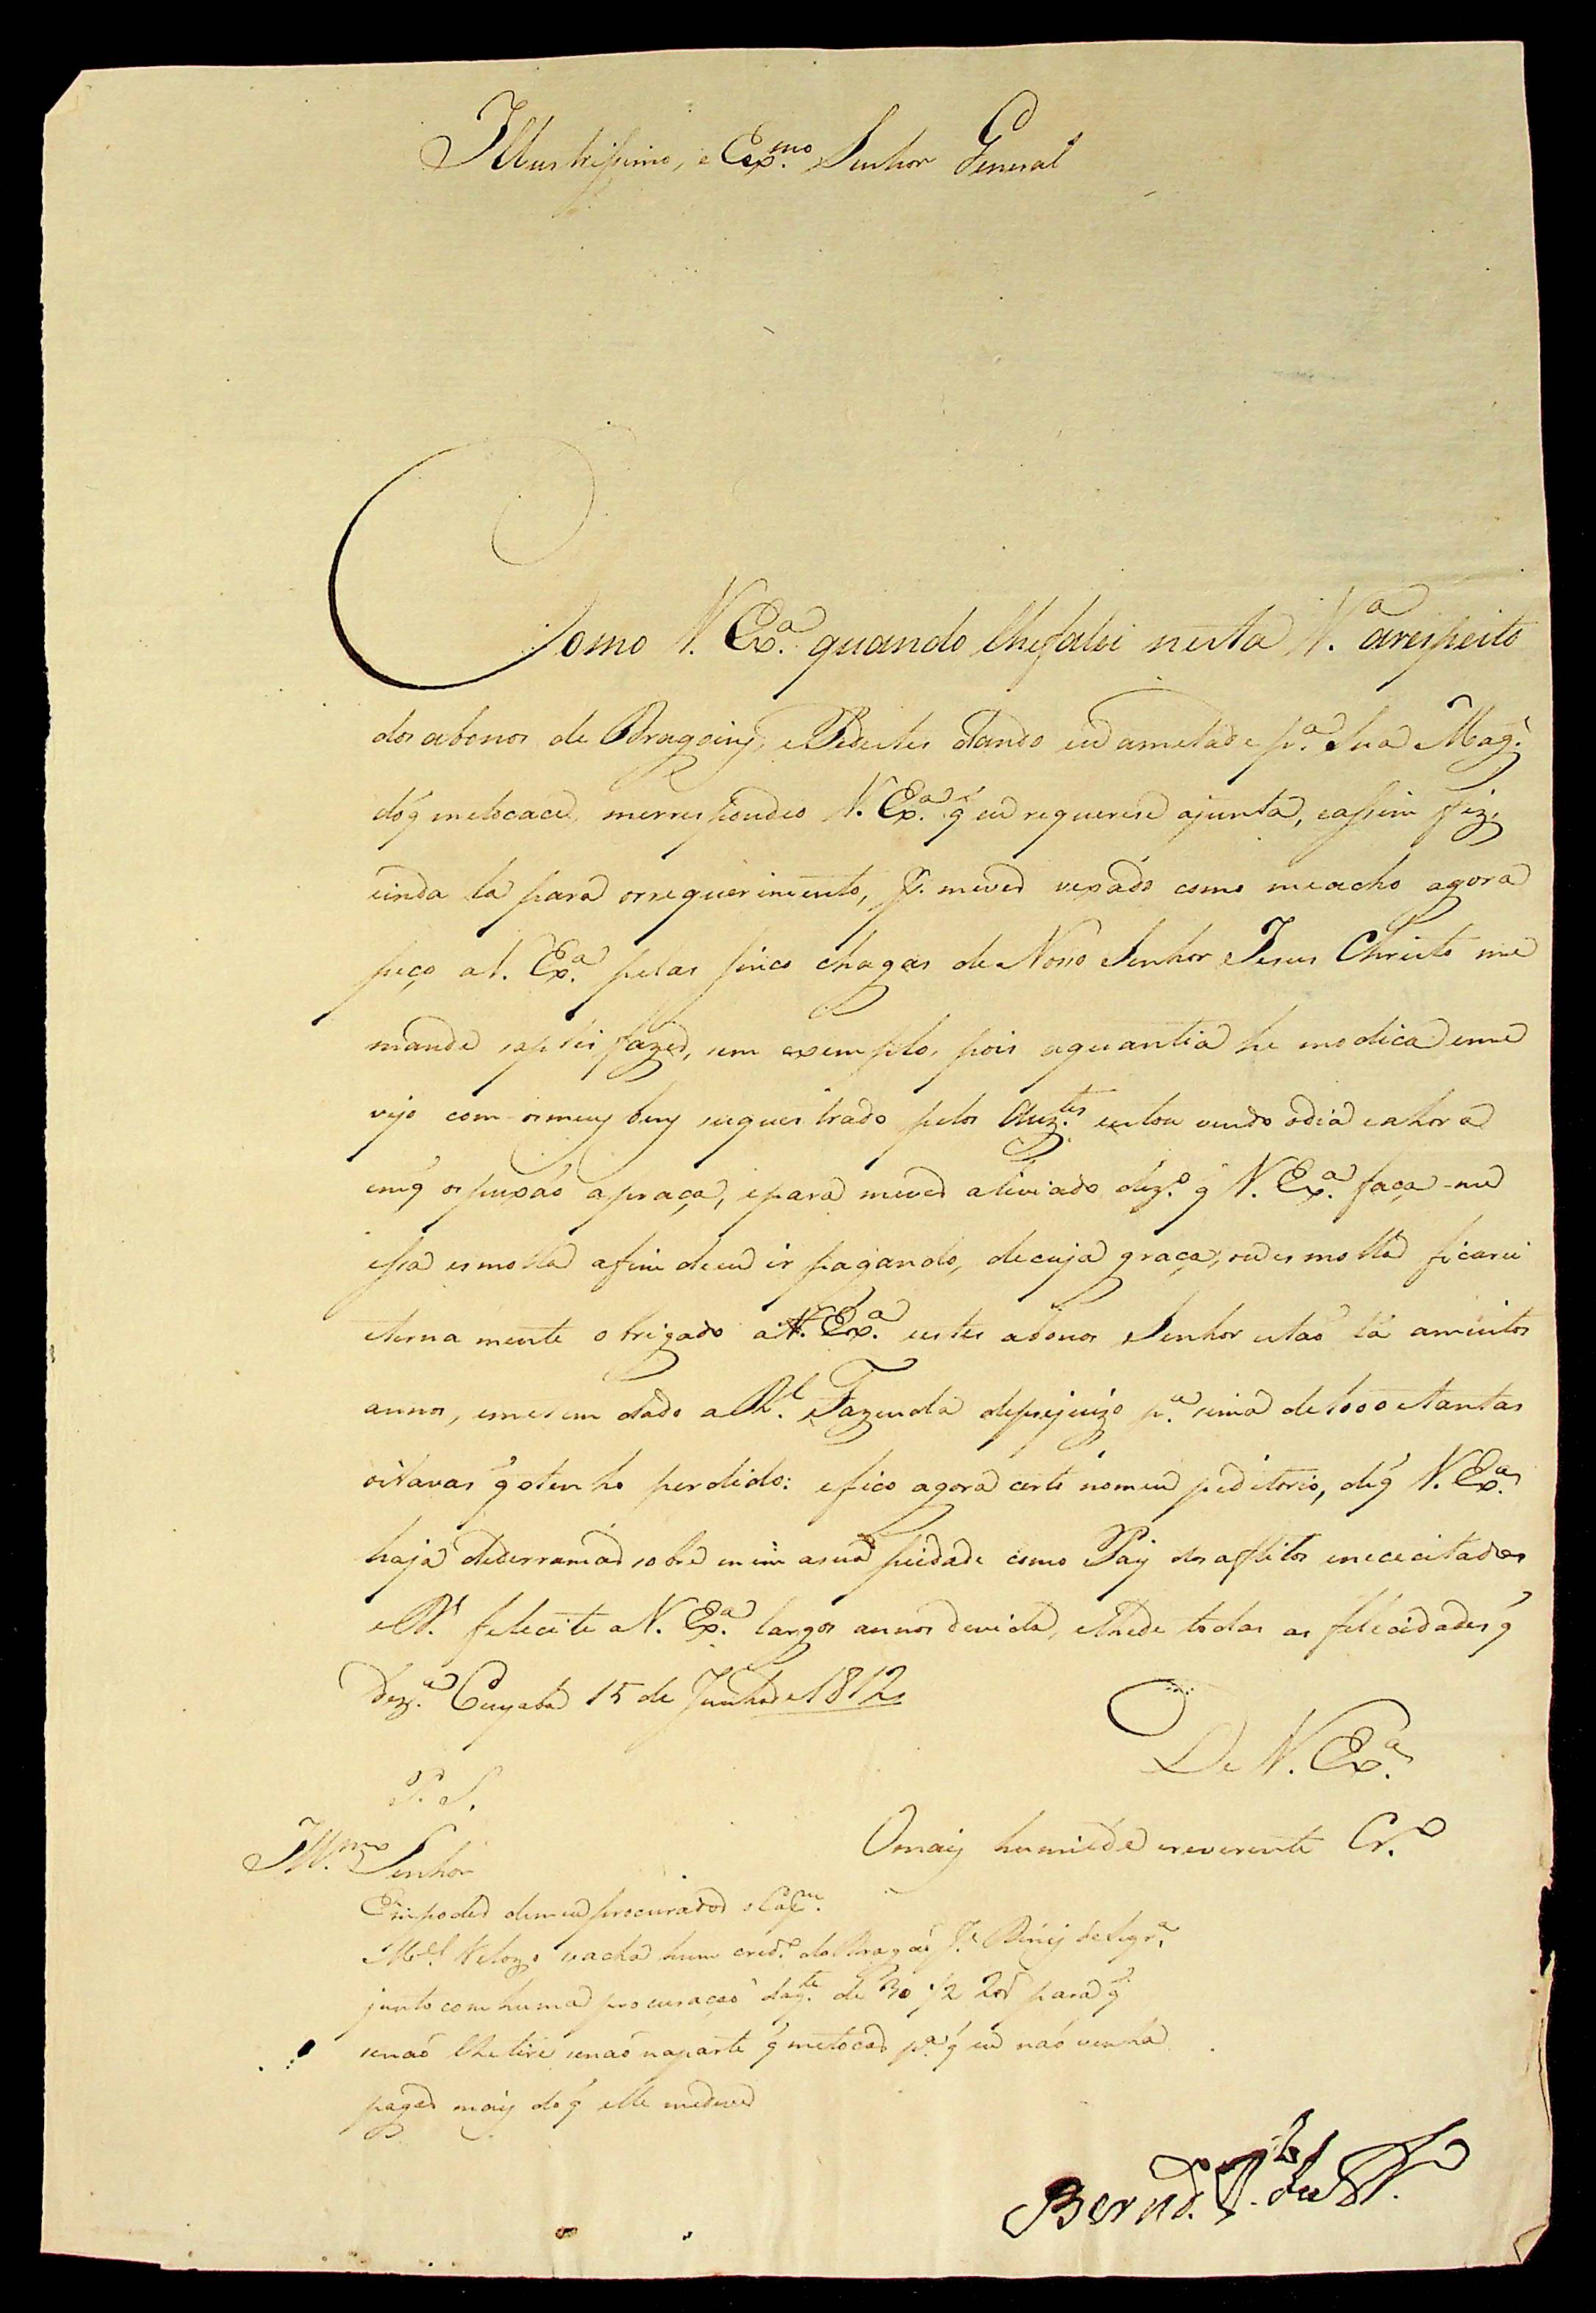 Illustrissimo, e Exmo. Senhor General
Como V. Exa. quando lhefalei nesta V.a arespeito
dos abonos de Dragoins, e Pedestes dando eu ametade pa. Sua Mag.e
doq metocace, merrespondeo V. Exa. q eu requerese ajunta, eassim fiz,
einda la para orrequerimento, p. mever vexado como meacho agora
peço a V. Exa. pelas sinco chagas de Noso Senhor Jesus Christo me
mande saptisfazer, sem exemplo, pois aquantia he modica eme
vejo com osmeus bens sequestrado pelos Auz.tes estou vendo odia eahora
emq os puxáo apraça, epara mever aliviado dez.o q V. Exa. faça-me
essa esmolla afim deeu ir pagando, decuja graça, ou esmolla ficarei
eternamente obrigado a V. Exa. estes abonos Senhor estaó lá amuitos
annos, emetem dado a R.l Fazenda deprejuizo pa. sima de 1000 etantas
oitavas q otenho perdido: efico agora certo nomeu peditorio, deq V. Exa.
haja dederramar sobre mim asua piedade como Pay dos aflitos enececitados
e D.s felecite a V. Exa. largos annos devida, elhede todas as felicidades q
Dez.a Cuyaba 15 de Junho de 1812
De V. Exa.
P. S.
Omais humilde ereverente Cr.o
Illmo. Senhor
Empoder demeu procurador o Cap.m
M.el Velozo seacha hum cred.o do Dragaó
junto com huma procuraçaó daq.te de 30 1/2 8as paraq
senaó lhe tire senaó naparte q metocar pa. q eu naó venha
pagar mais doq elle medeve